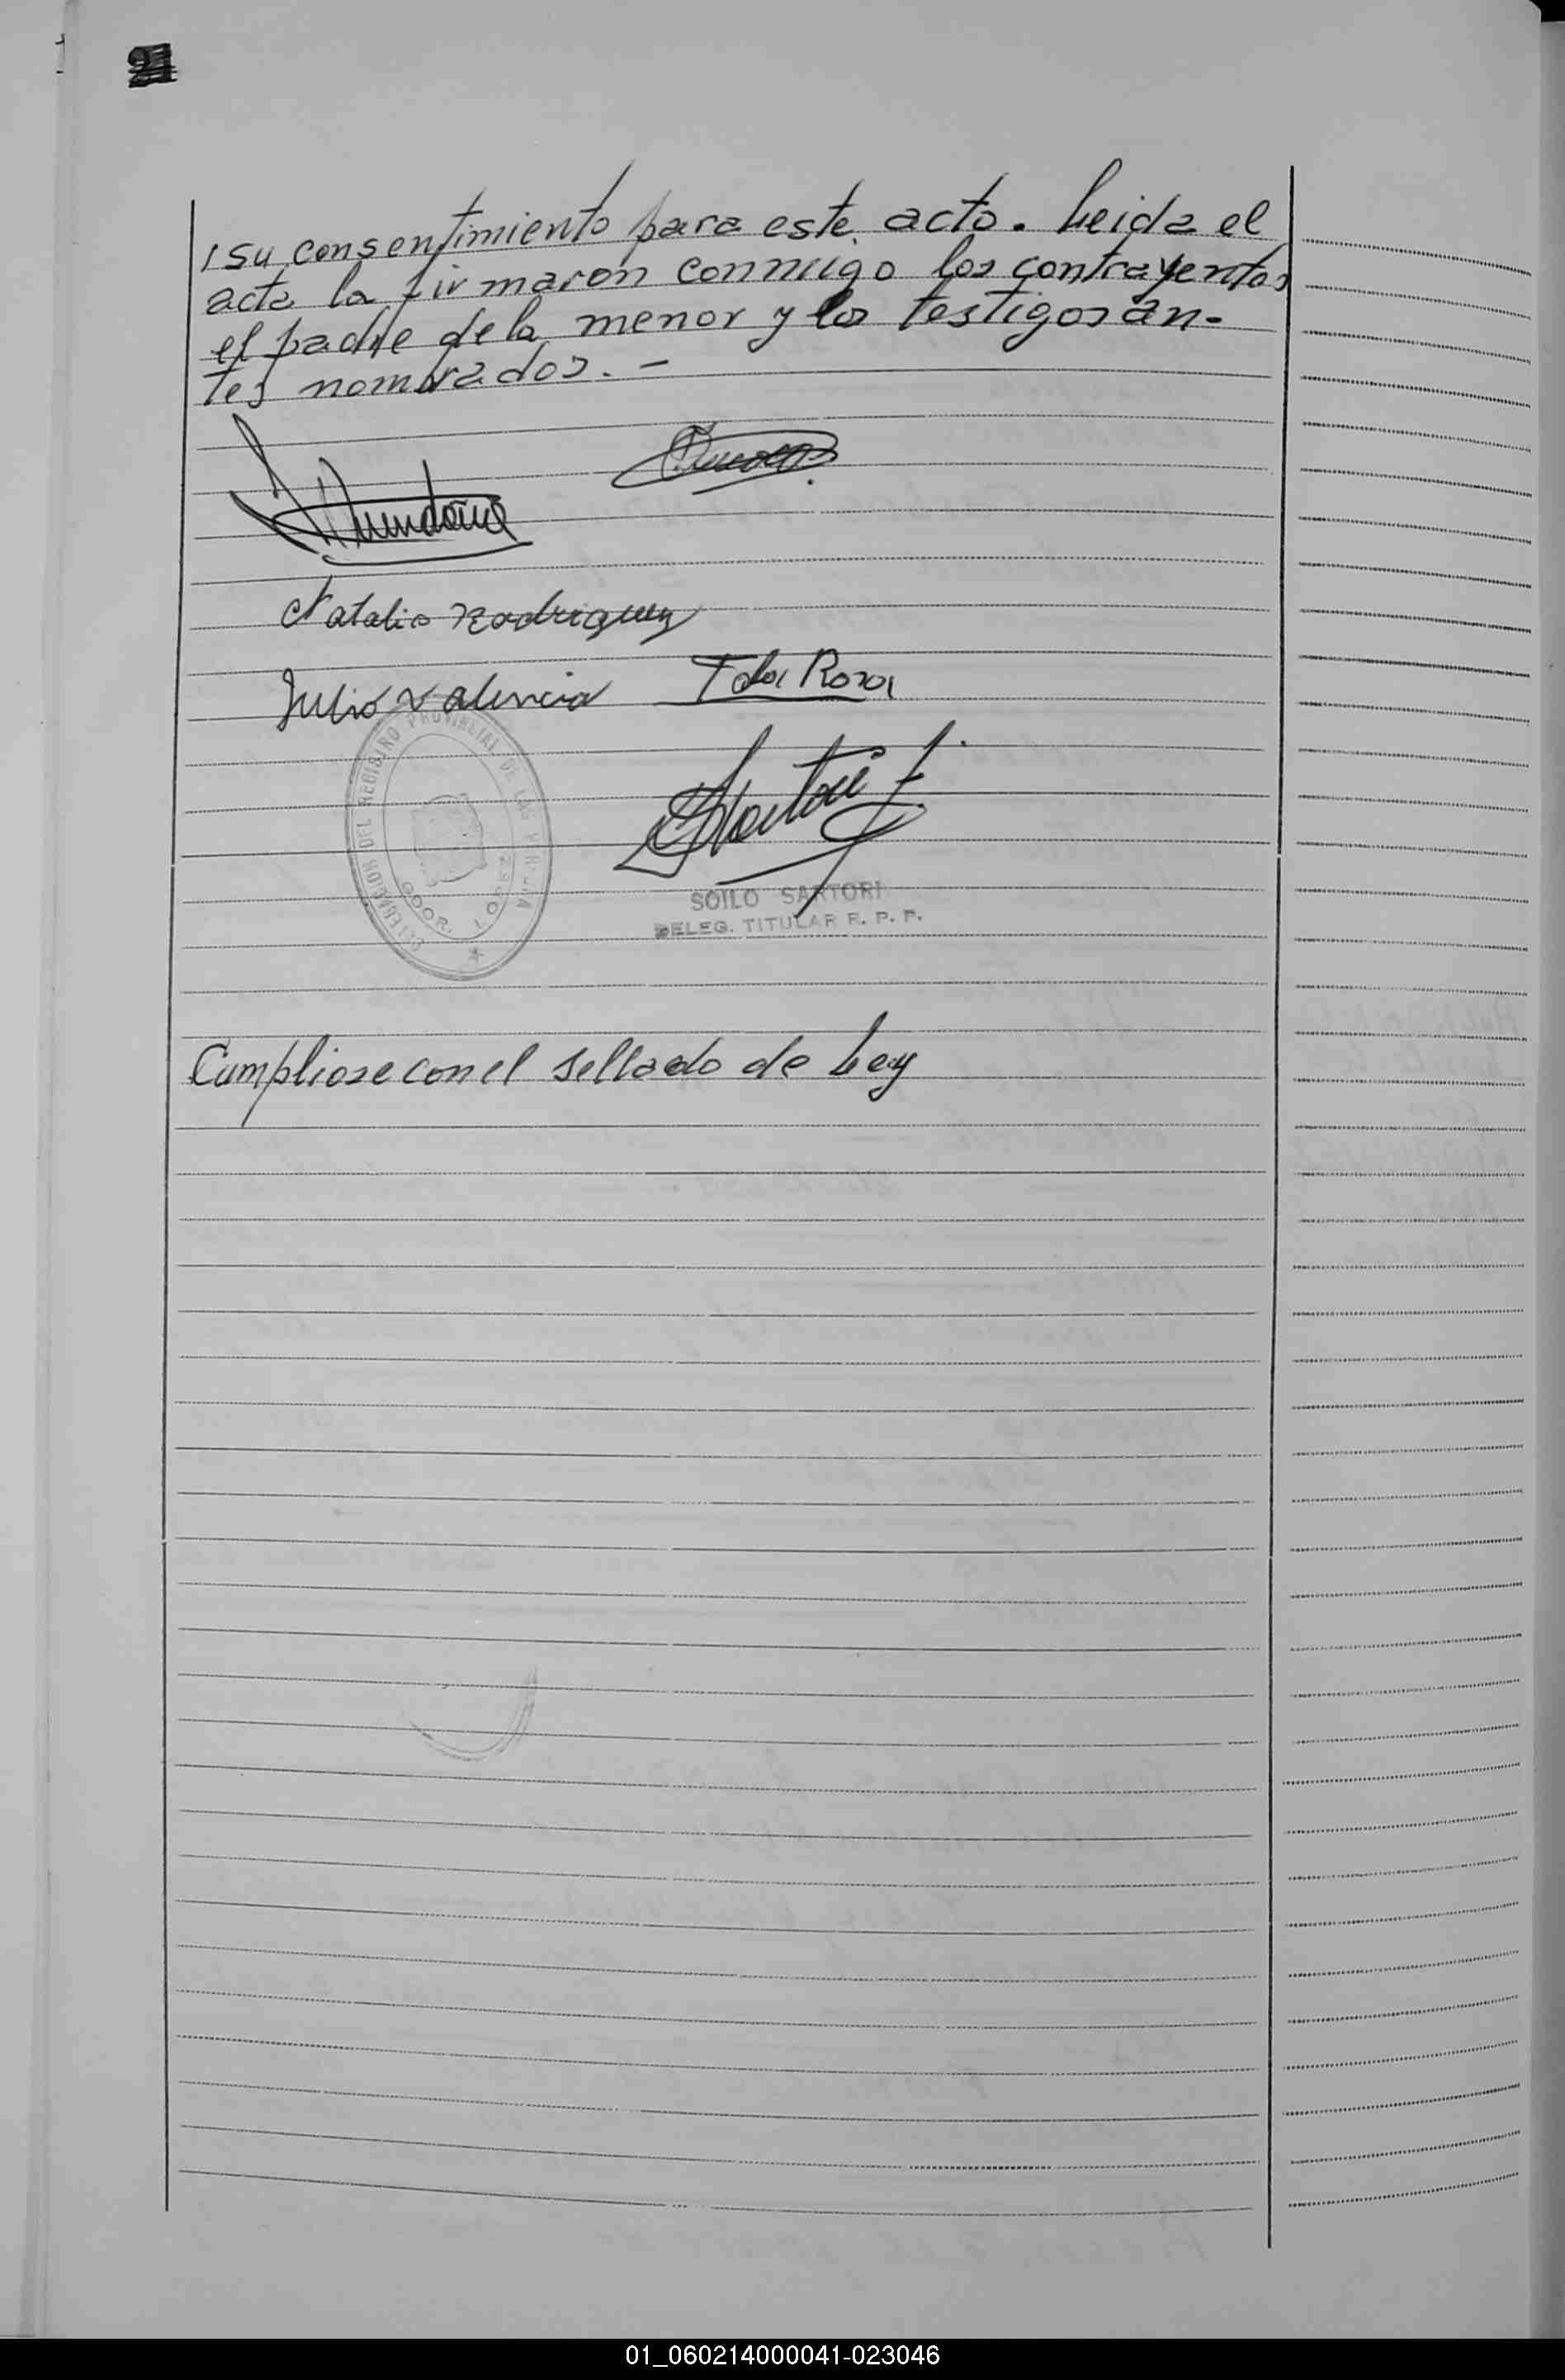 su consentimiento para este acto. Leida el
acta la firmaron conmigo los contrayentes
el padre de la menor y los testigos an-
tes nombrados. -
Natalio Rodriguez
Julio Valencia
I da Rosa
DEL REGISTRO PROVINCIAL DE LAS PERSONAS
SOILO SARTORI
DELEG. TITULAR R. P. P.
Cumpliose con el sellado de Ley
01_060214000041-023046